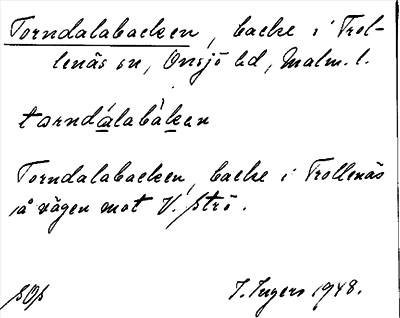 Torndalabacken, backe i Trol-
lenäs sn, Onsjö hd, Malm. l.
tɷrndálabàkən
Torndalabacken, backe i Trollenäs
på vägen mot V. Strö.
I. Ingers 1948.